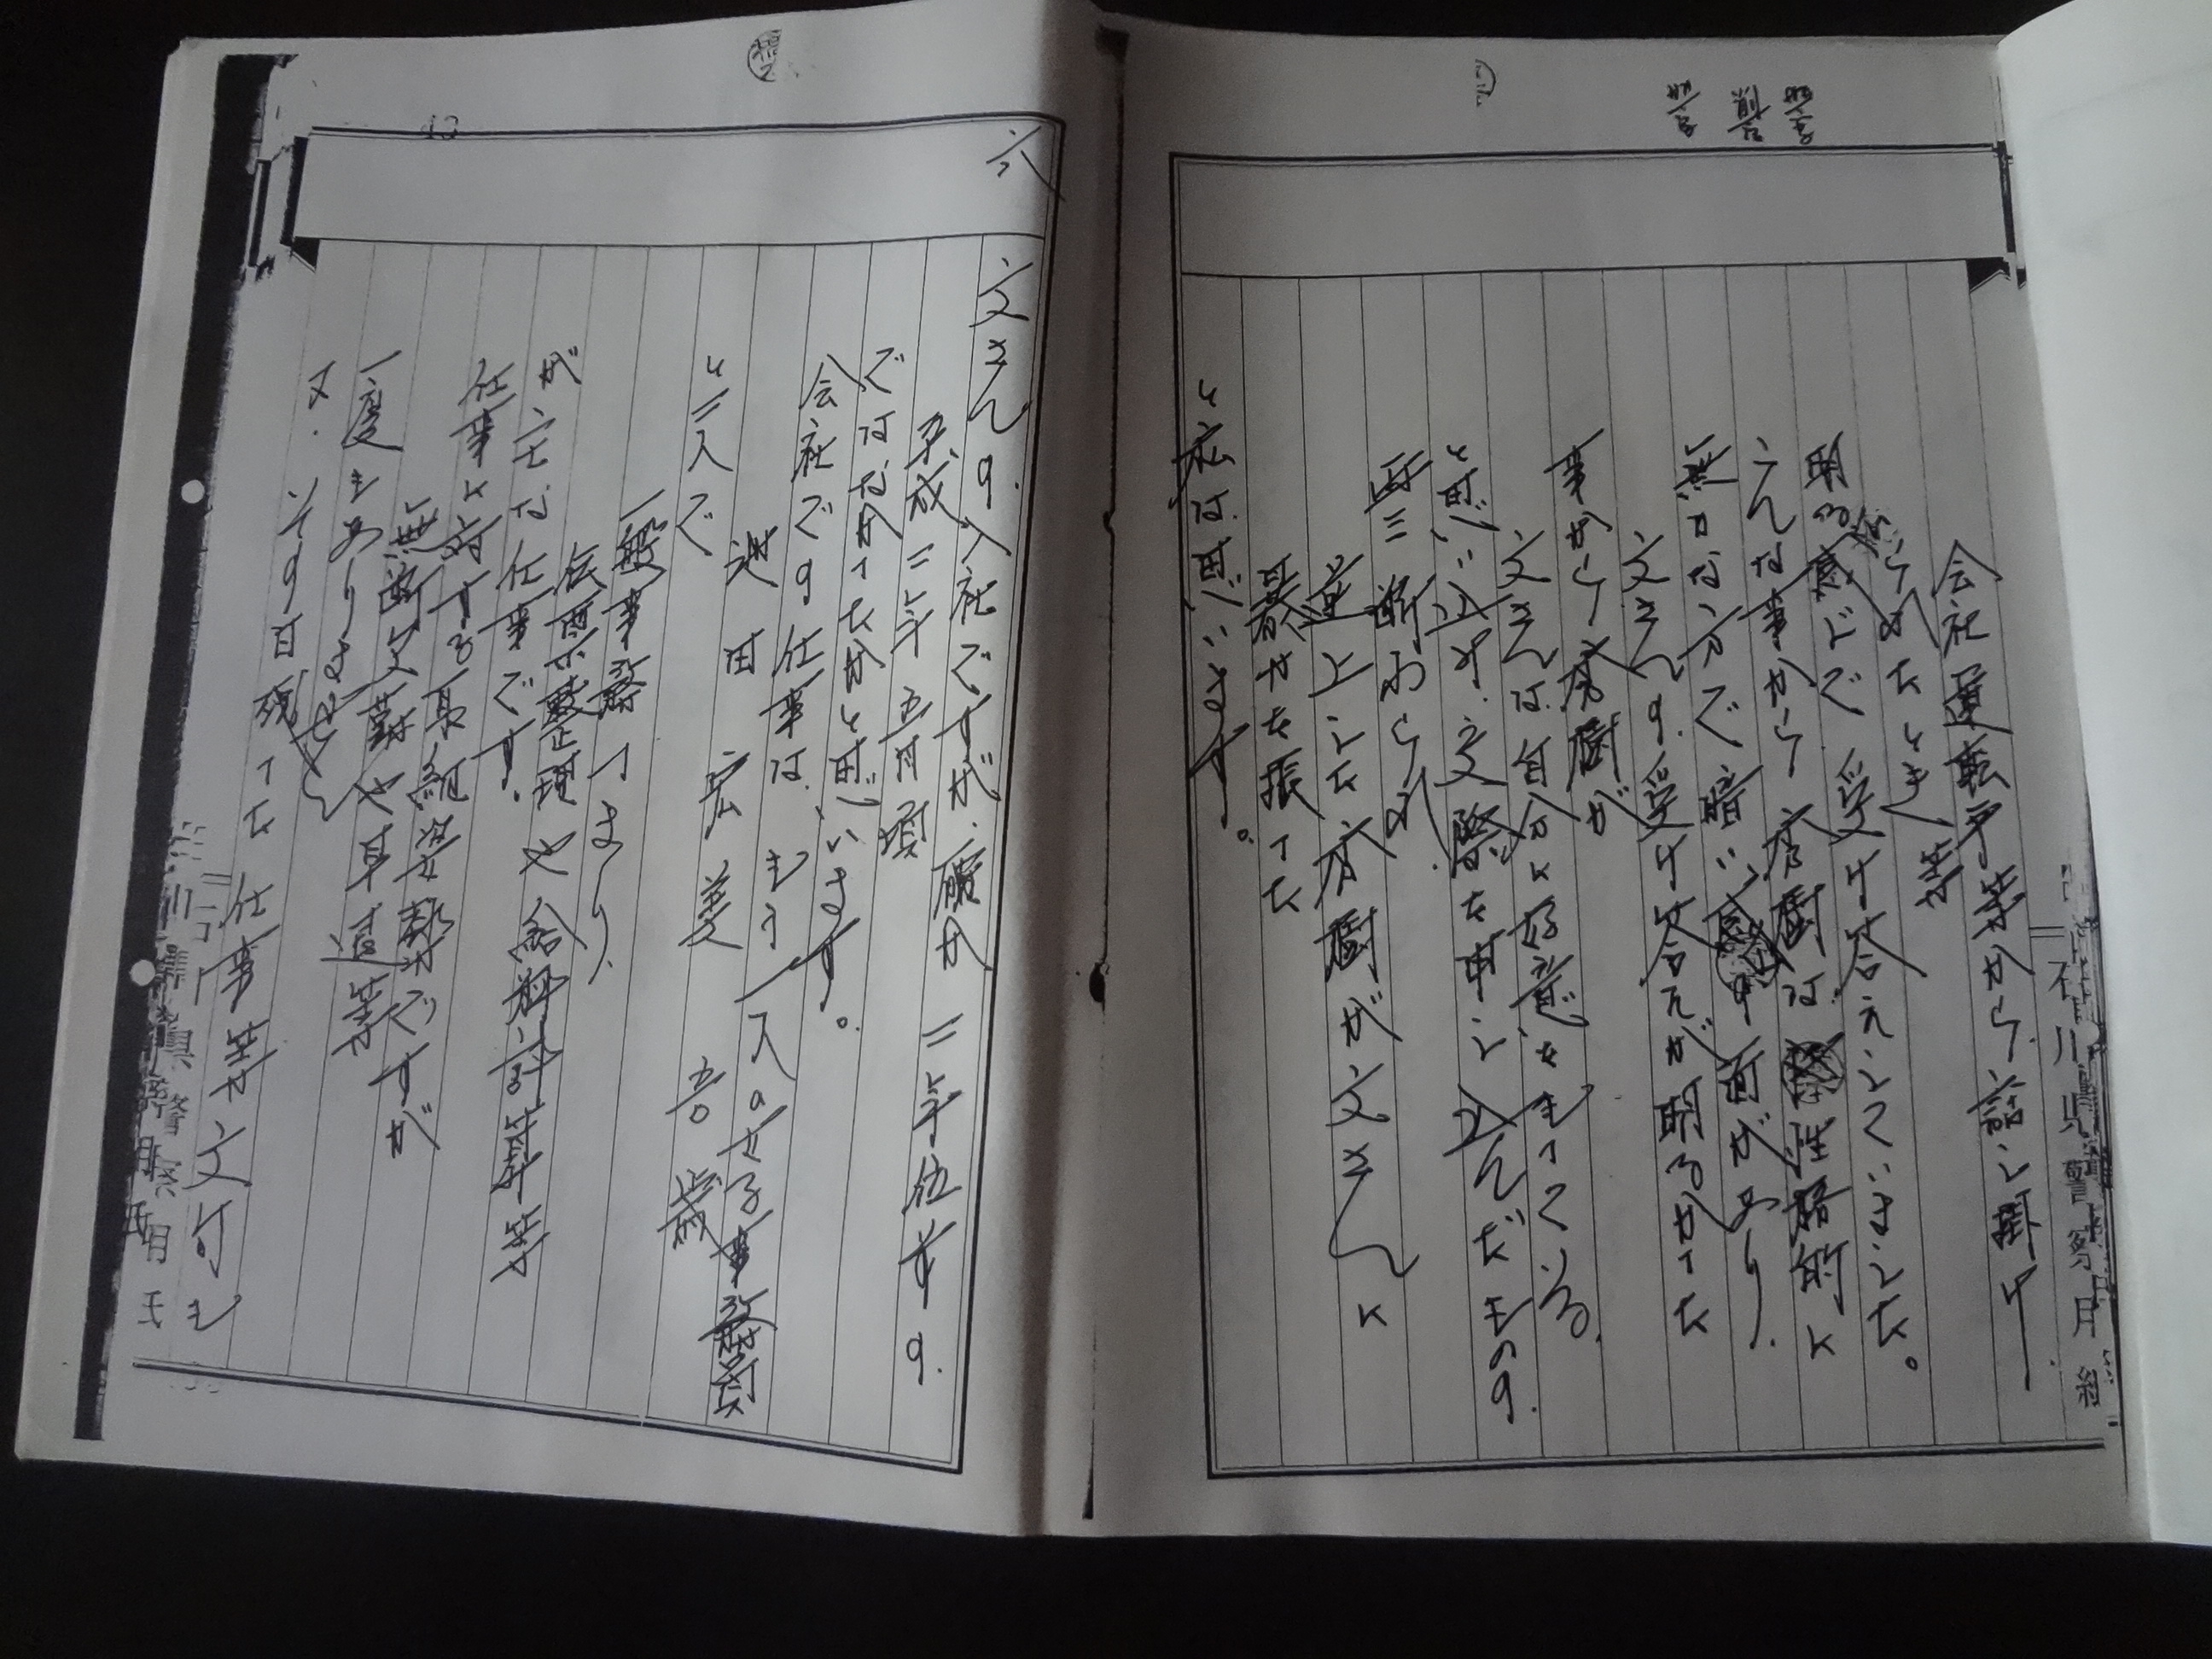 会社運転手等から、話し掛け
られたとき等
明るい感じで受け答えしていました。
そんな事から、秀樹は、性格的に
無口な方で暗い面があり、
文さんの受け答えが明るかった
事から秀樹が
文さんは自分に好意をもっている
と思い込み、交際を申し込んだものの、
再三断わられ、
逆上した秀樹が文さんに
暴力を振った
と私は思います。
六
文さんの入社ですが、確か二年位前の、
平成二年五月頃
ではなかったかと思います。
会社での仕事は、もう一人の女子事務員
池田宏美 吉歳
と二人で
一般事務、つまり、
伝票整理や給料計算等
が主な仕事です。
仕事に対する取組姿勢ですが
無断欠勤や早退等
一度もありません
又、その日残った仕事等文句も
石川県警察